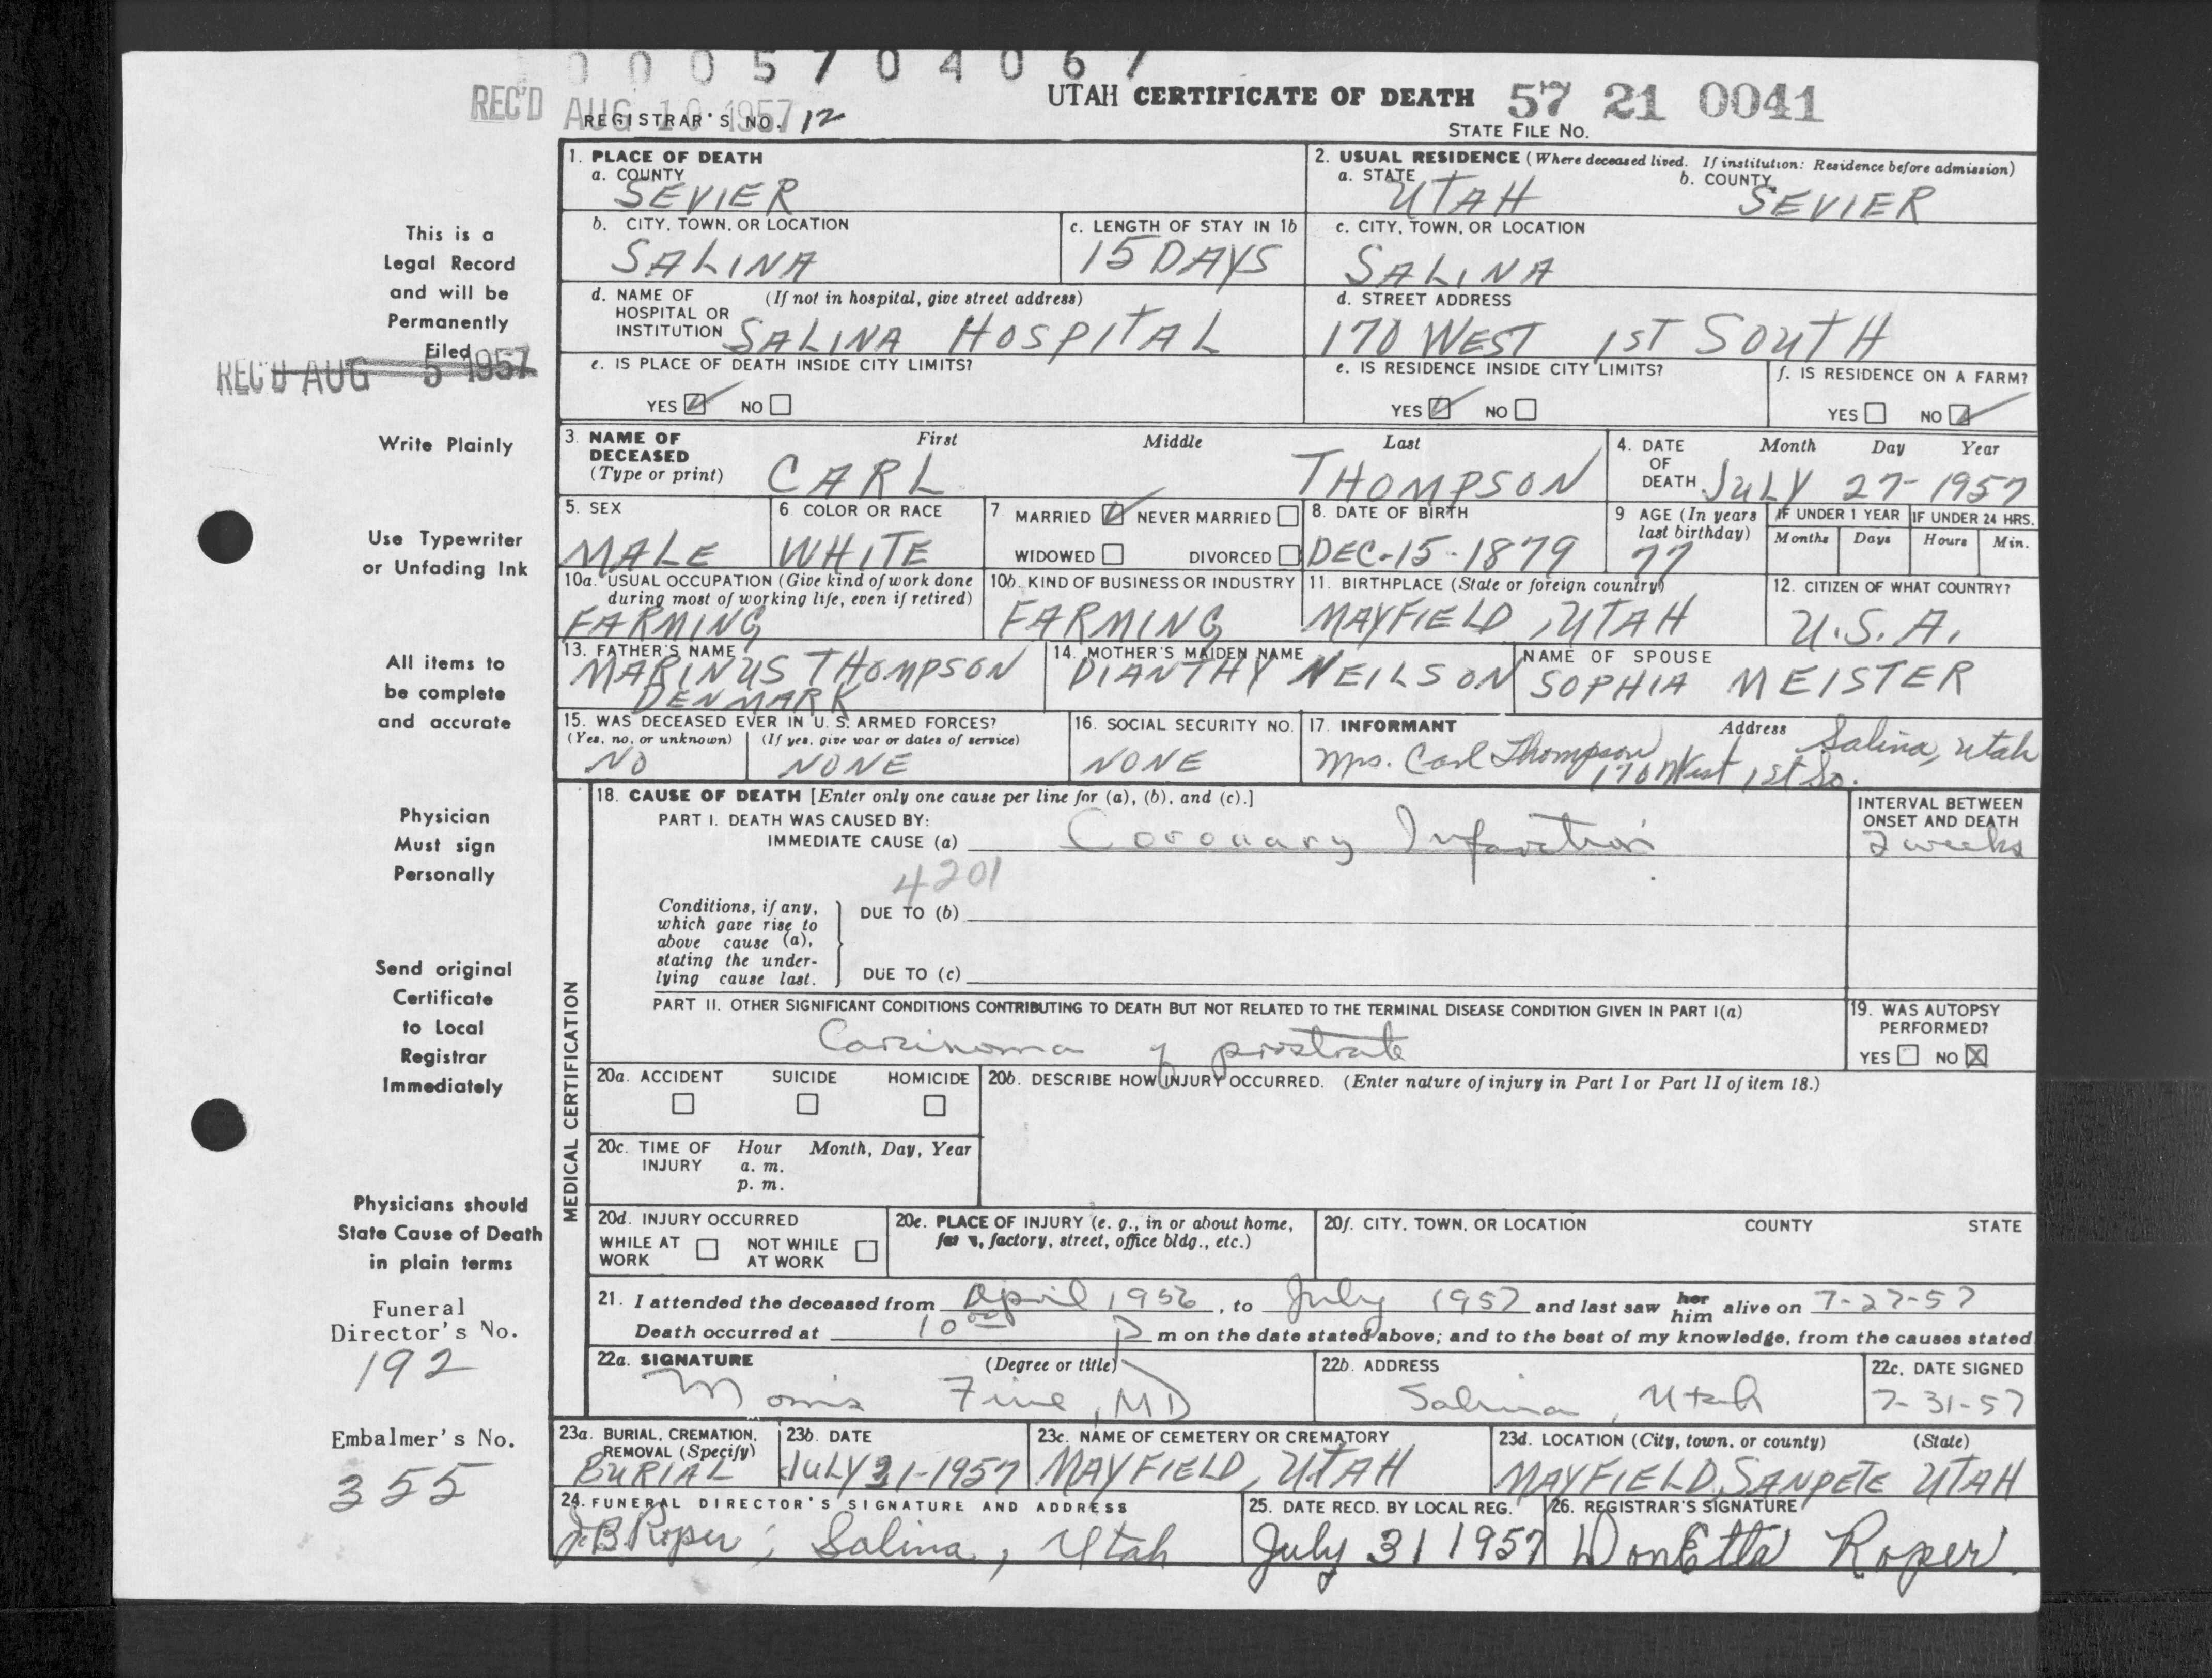 0 0 0 5 7 0 4 0 6 7
REC'D AUG 10 1957
UTAH CERTIFICATE OF DEATH 57 21 0041
REGISTRAR'S NO. 12
STATE FILE NO.
This is a
Legal Record
and will be
Permanently
Filed
REC'D AUG 5 1957
Write Plainly
Use Typewriter
or Unfading Ink
All items to
be complete
and accurate
Physician
Must sign
Personally
Send original
Certificate
to Local
Registrar
Immediately
Physicians should
State Cause of Death
in plain terms
Funeral
Director's No.
192
Embalmer's No.
355
1. PLACE OF DEATH
a. COUNTY
SEVIER
2. USUAL RESIDENCE (Where deceased lived. If institution: Residence before admission)
a. STATE UTAH b. COUNTY SEVIER
b. CITY, TOWN, OR LOCATION
SALINA
c. LENGTH OF STAY IN 1b
15 DAYS
c. CITY, TOWN, OR LOCATION
SALINA
d. NAME OF (If not in hospital, give street address)
HOSPITAL OR
INSTITUTION SALINA HOSPITAL
d. STREET ADDRESS
170 WEST 1ST SOUTH
e. IS PLACE OF DEATH INSIDE CITY LIMITS?
YES NO
e. IS RESIDENCE INSIDE CITY LIMITS?
YES NO
f. IS RESIDENCE ON A FARM?
YES NO
3. NAME OF First Middle Last
DECEASED
(Type or print) CARL THOMPSON
4. DATE Month Day Year
OF
DEATH JULY 27-1957
5. SEX
MALE
6. COLOR OR RACE
WHITE
7. MARRIED NEVER MARRIED
WIDOWED DIVORCED
8. DATE OF BIRTH
DEC-15-1879
9 AGE (In years
last birthday)
77
IF UNDER 1 YEAR
Months Days
IF UNDER 24 HRS.
Hours Min.
10a. USUAL OCCUPATION (Give kind of work done
during most of working life, even if retired)
FARMING
10b. KIND OF BUSINESS OR INDUSTRY
FARMING
11. BIRTHPLACE (State or foreign country)
MAYFIELD, UTAH
12. CITIZEN OF WHAT COUNTRY?
U.S.A.
13. FATHER'S NAME
MARINUS THOMPSON
DENMARK
14. MOTHER'S MAIDEN NAME
DIANTHY NEILSON
NAME OF SPOUSE
SOPHIA MEISTER
15. WAS DECEASED EVER IN U. S. ARMED FORCES?
(Yes, no, or unknown) (If yes, give war or dates of service)
NO NONE
16. SOCIAL SECURITY NO.
NONE
17. INFORMANT Address
Mrs. Carl Thompson Salina, Utah
170 West 1st So.
MEDICAL CERTIFICATION
18. CAUSE OF DEATH [Enter only one cause per line for (a), (b), and (c).]
PART I. DEATH WAS CAUSED BY:
IMMEDIATE CAUSE (a) Coronary Infarction
INTERVAL BETWEEN
ONSET AND DEATH
2 weeks
4201
Conditions, if any,
which gave rise to
above cause (a),
stating the under-
lying cause last.
DUE TO (b)
DUE TO (c)
PART II. OTHER SIGNIFICANT CONDITIONS CONTRIBUTING TO DEATH BUT NOT RELATED TO THE TERMINAL DISEASE CONDITION GIVEN IN PART I(a)
Carcinoma of prostrate
19. WAS AUTOPSY
PERFORMED?
YES NO
20a. ACCIDENT SUICIDE HOMICIDE
20b. DESCRIBE HOW INJURY OCCURRED. (Enter nature of injury in Part I or Part II of item 18.)
20c. TIME OF Hour Month, Day, Year
INJURY a. m.
p. m.
20d. INJURY OCCURRED
WHILE AT
WORK
NOT WHILE
AT WORK
20e. PLACE OF INJURY (e. g., in or about home,
factory, street, office bldg., etc.)
20f. CITY, TOWN, OR LOCATION COUNTY STATE
21. I attended the deceased from April 1956, to July 1957 and last saw her him alive on 7-27-57
Death occurred at 10 00 P m on the date stated above; and to the best of my knowledge, from the causes stated
22a. SIGNATURE (Degree or title)
Morris Fine, MD
22b. ADDRESS
Salina, Utah
22c. DATE SIGNED
7-31-57
23a. BURIAL, CREMATION,
REMOVAL (Specify)
BURIAL
23b. DATE
JULY 31-1957
23c. NAME OF CEMETERY OR CREMATORY
MAYFIELD, UTAH
23d. LOCATION (City, town, or county) (State)
MAYFIELD, SANPETE UTAH
24. FUNERAL DIRECTOR'S SIGNATURE AND ADDRESS
J.B. Roper; Salina, Utah
25. DATE RECD. BY LOCAL REG.
July 31 1957
26. REGISTRAR'S SIGNATURE
DonEtta Roper